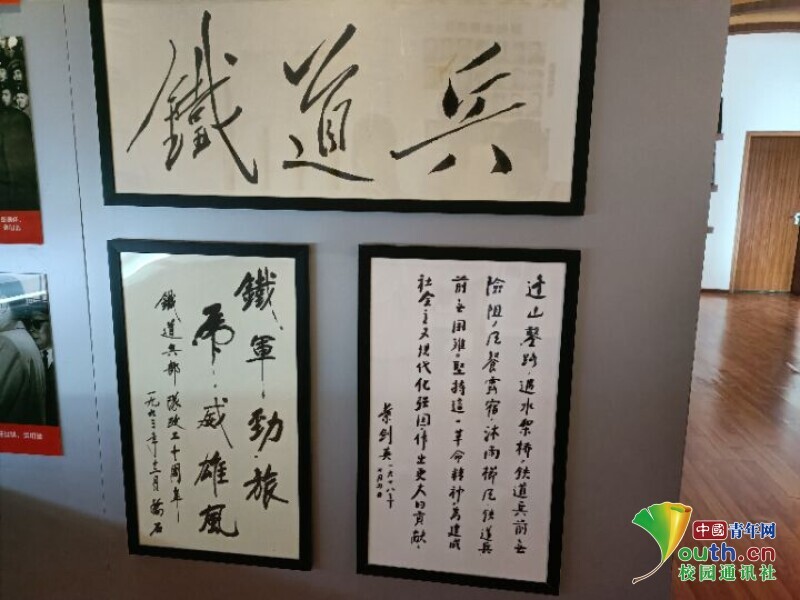 鐵道兵
鐵軍勁旅
虎威雄風
鐵道兵部隊改工十周年
一九九三年十二月
逢山鑿路，遇水架橋，铁道兵前无
险阻；风餐露宿，沐雨櫛风，铁道兵
前无困难。坚持這一革命精神，為建成
社会主义现代化强国，作出更大的贡献。
葉剑英
中國青年网
youth.cn
校园通讯社